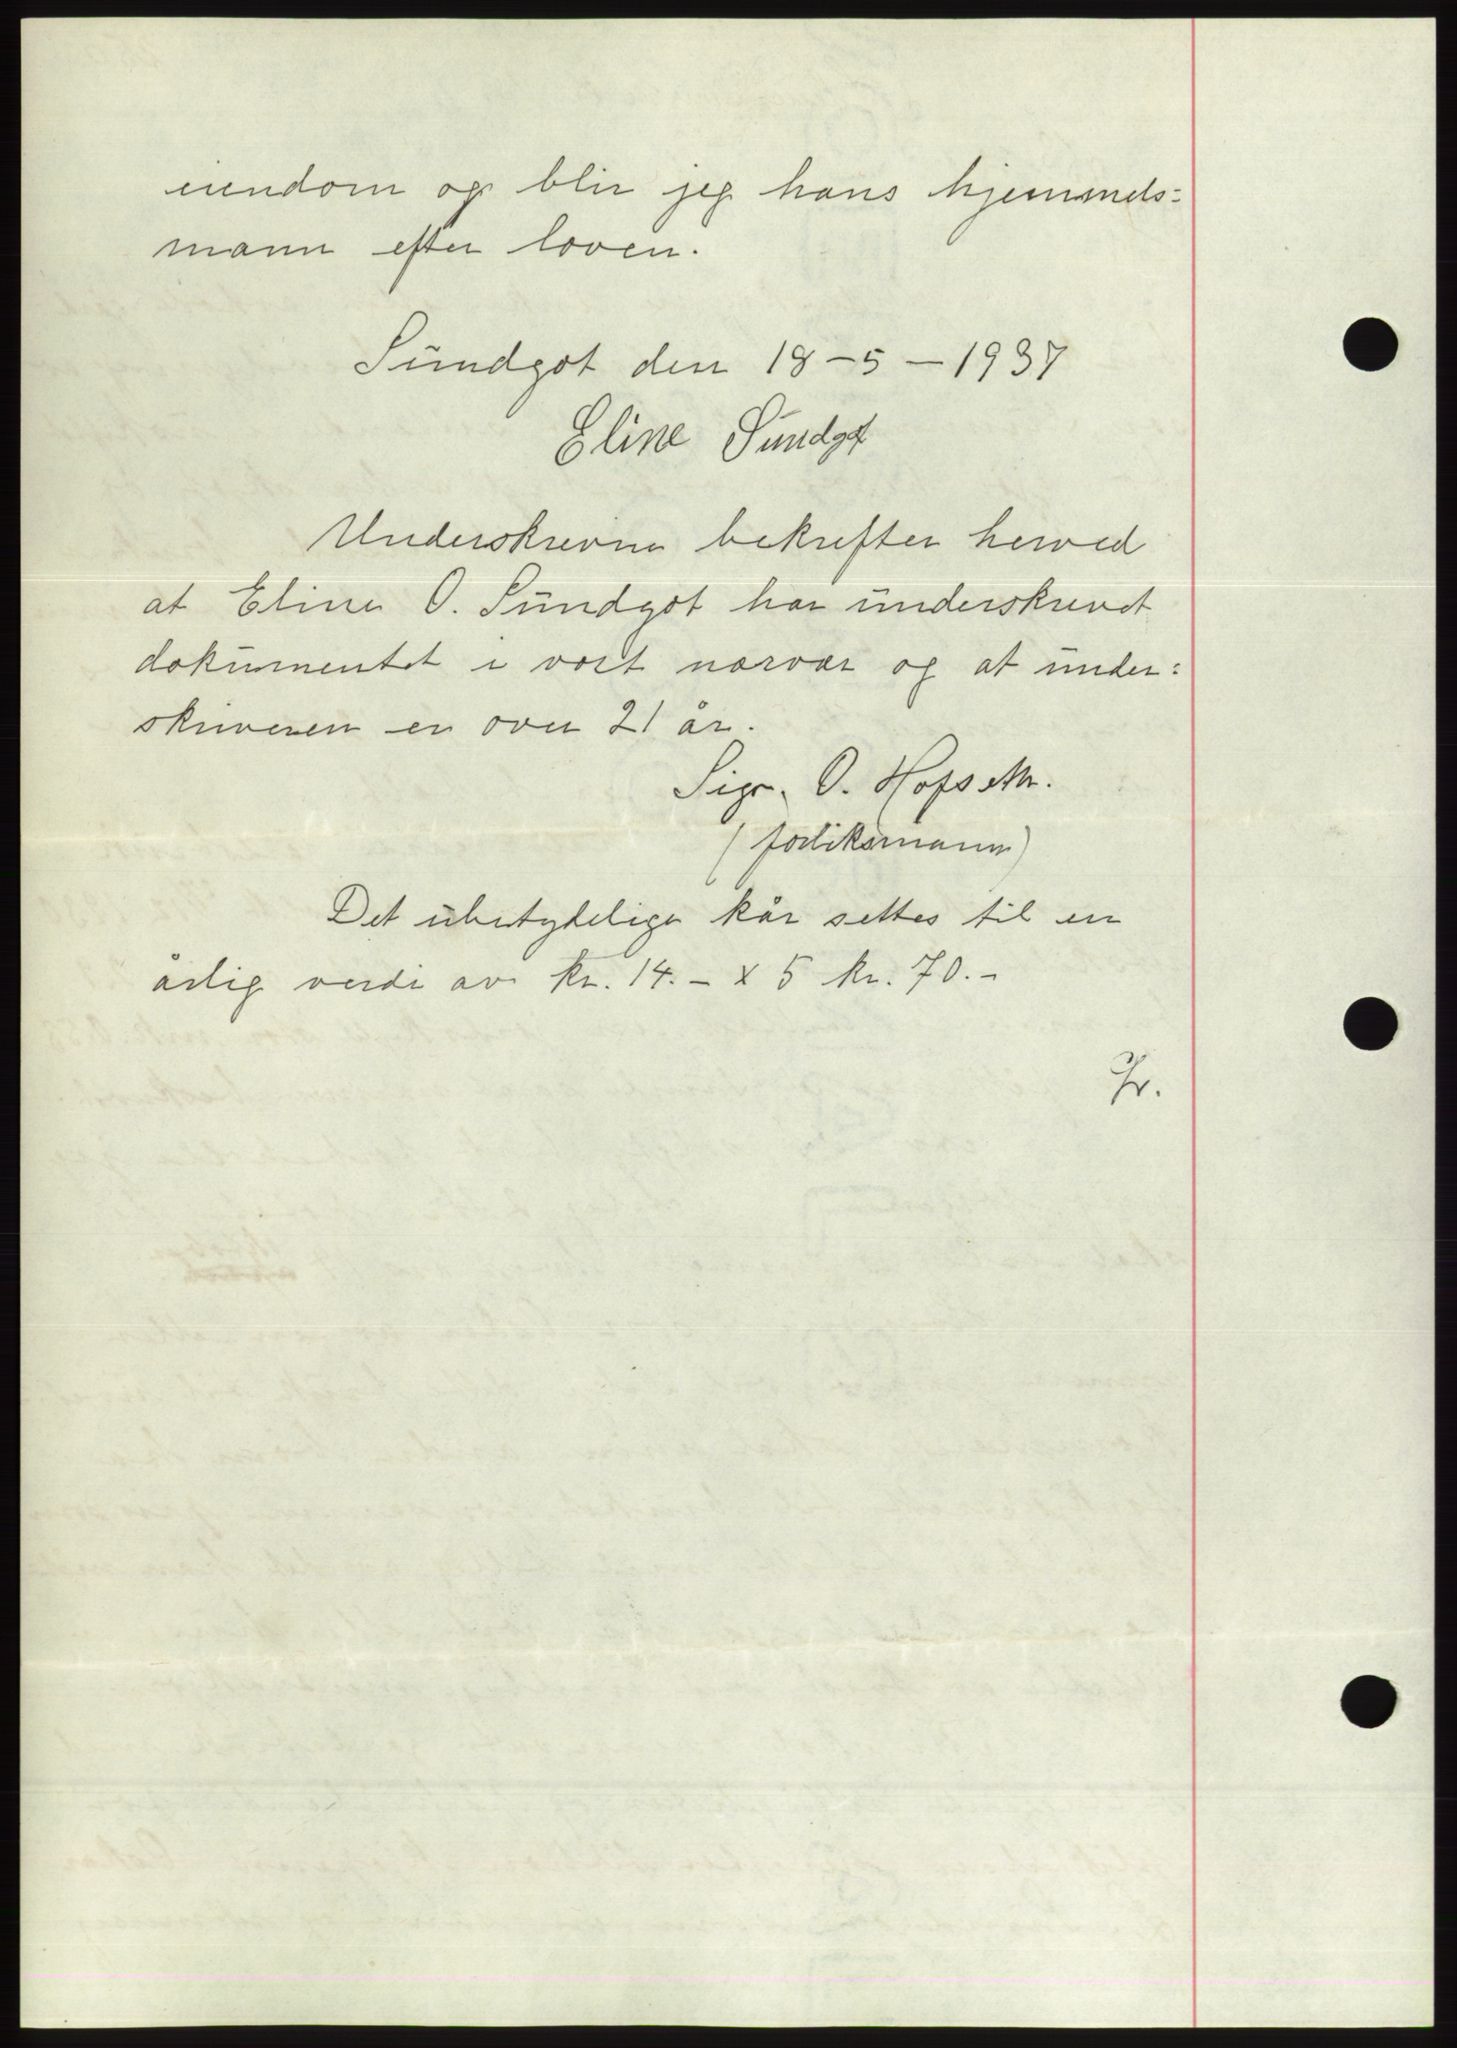 eiendom og blir jeg hans hjemmels=
mann efter loven.
Sundgot den 18-5-1937
Eline Sundgot
Underskrevne bekrefter herved
at Eline O. Sundgot har underskrevet
dokumentet i vort nærvær og at under=
skriveren er over 21 år.
Sign. O. Hofseth.
(forliksmann)
Det ubetydelige kår settes til en
årlig verdi av kr. 14.- x 5 kr. 70.-